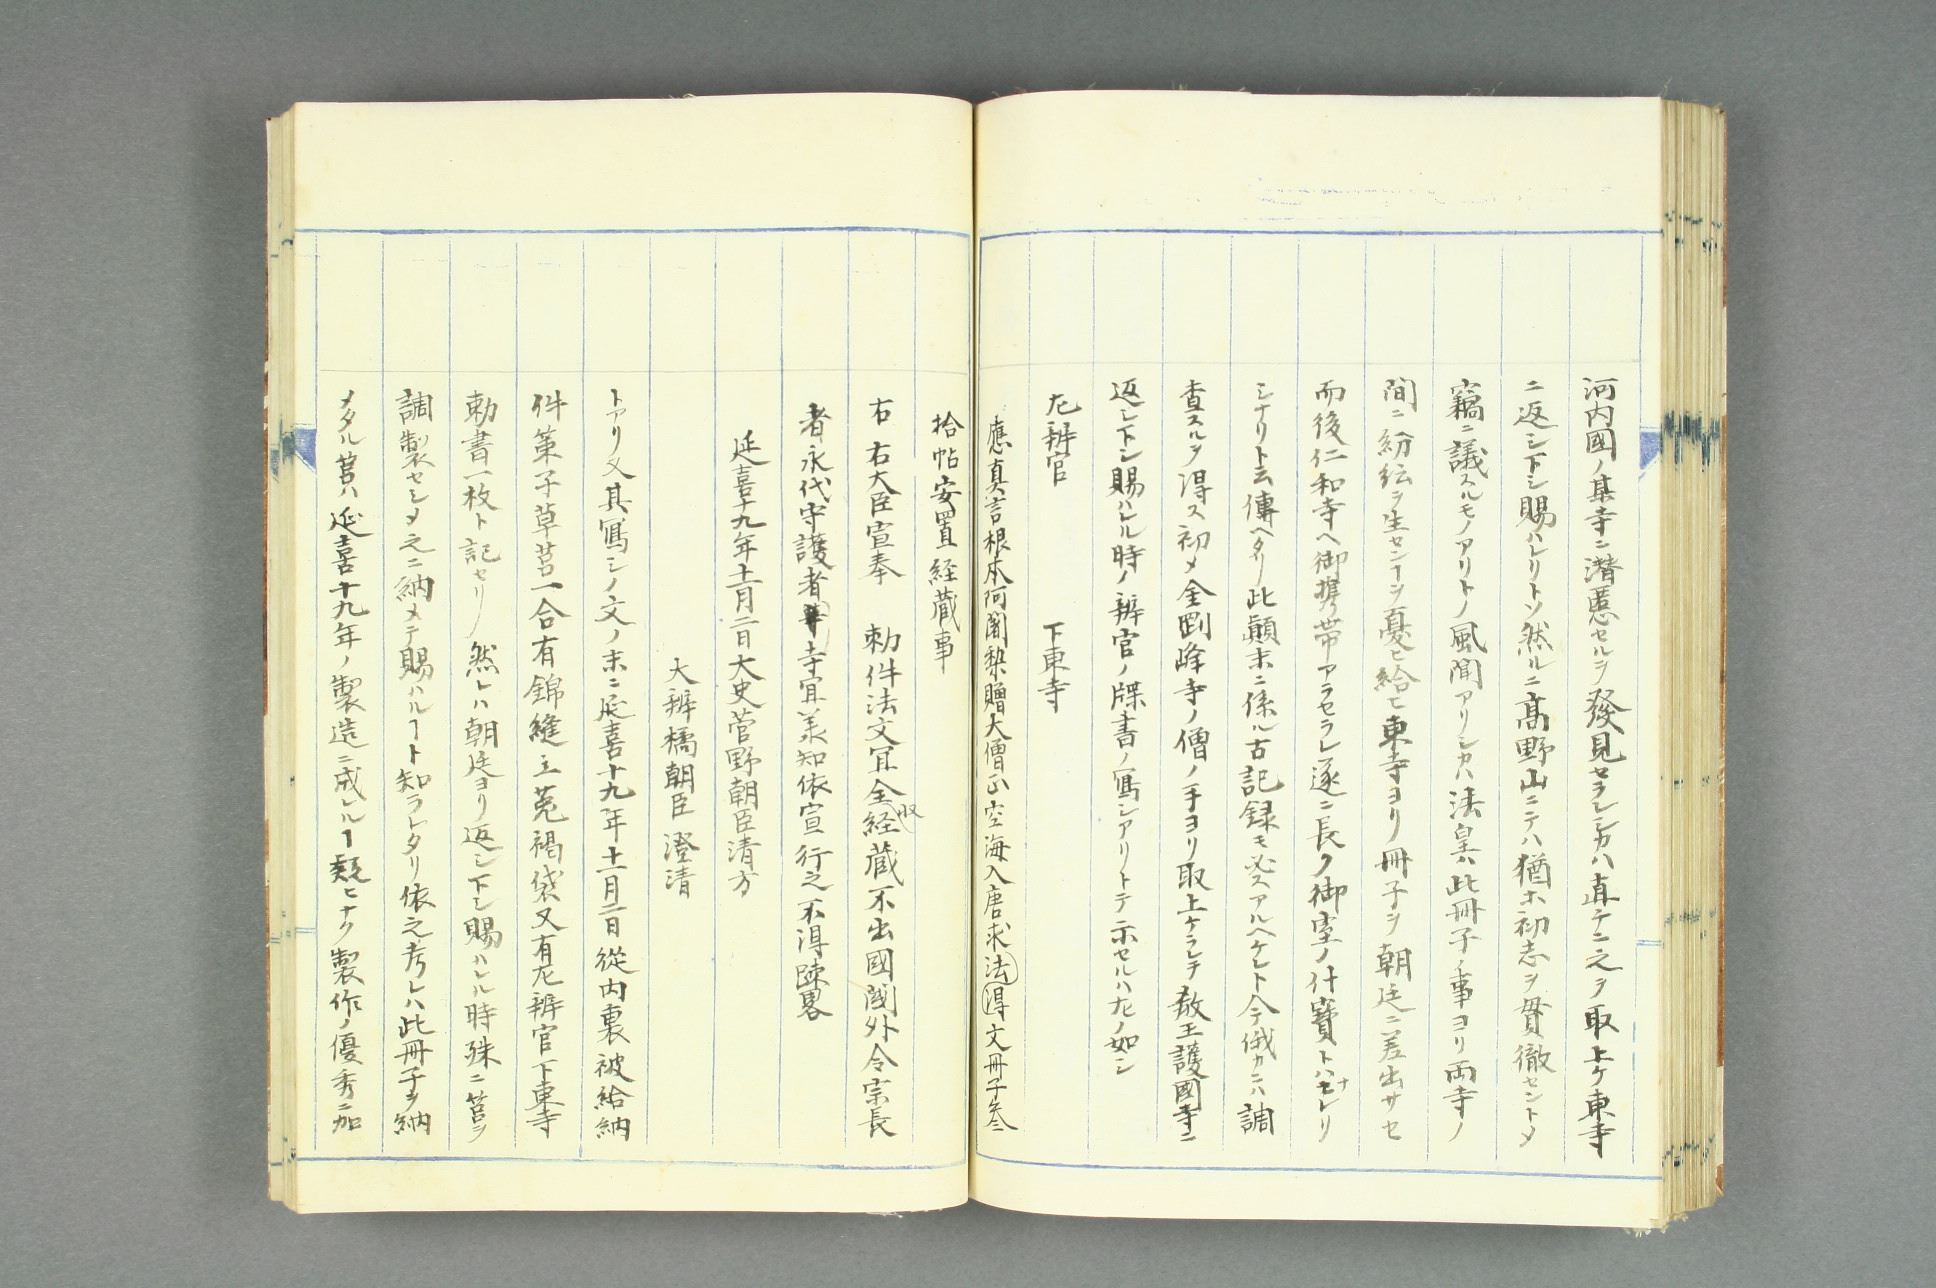 河内國ノ某寺ニ潜匿セルヲ發見セラレシカハ直チニ之ヲ取上ケ東寺
ニ返シ下シ賜ハレリトソ然ルニ髙野山ニテハ猶ホ初志ヲ貫徹セントメ
竊ニ議スルモノアリトノ風聞アリシカハ法皇ハ此冊子ノ事ヨリ両寺ノ
間ニ紛紜ヲ生センヿヲ憂ヒ給ヒ東寺ヨリ冊子ヲ朝廷ニ差出サセ
而後仁和寺ヘ御携帯アラセラレ遂ニ長ク御室ノ什寳トハナレリ
シナリト云傳ヘタリ此顛末ニ係ル古記録モ必スアルヘケレト今俄カニハ調
査スルヲ得ス初メ金剛峰寺ノ僧ノ手ヨリ取上ケラレテ教王護國寺ニ
返シ下シ賜ハレル時ノ辨官ノ牒書ノ寫シアリトテ示セルハ左ノ如シ
左辨官　下東寺
應真言根本阿闍梨贈大僧正空海入唐求法得文冊子叄
拾帖安置経蔵事
右　右大臣宣奉　勅件法文宜全収経蔵不出國閾外令宗長
者永代守護者寺宜羕知依宣行之不得踈畧
延喜十九年十一月二日大史菅野朝臣清方
大辨橘朝臣澄清
トアリ又其寫シノ文ノ末ニ延喜十九年十一月二日從内裏被給納
件策子草筥一合有錦縫立菟褐袋又有左辨官下東寺
勅書一枚ト記セリ然レハ朝廷ヨリ返シ下シ賜ハレル時殊ニ筥ヲ
調製セシメ之ニ納メテ賜ハルヿト知ラレタリ依之考レハ此冊子ヲ納
メタル筥ハ延喜十九年ノ製造ニ成レルヿ疑ヒナク製作ノ優秀ニ加